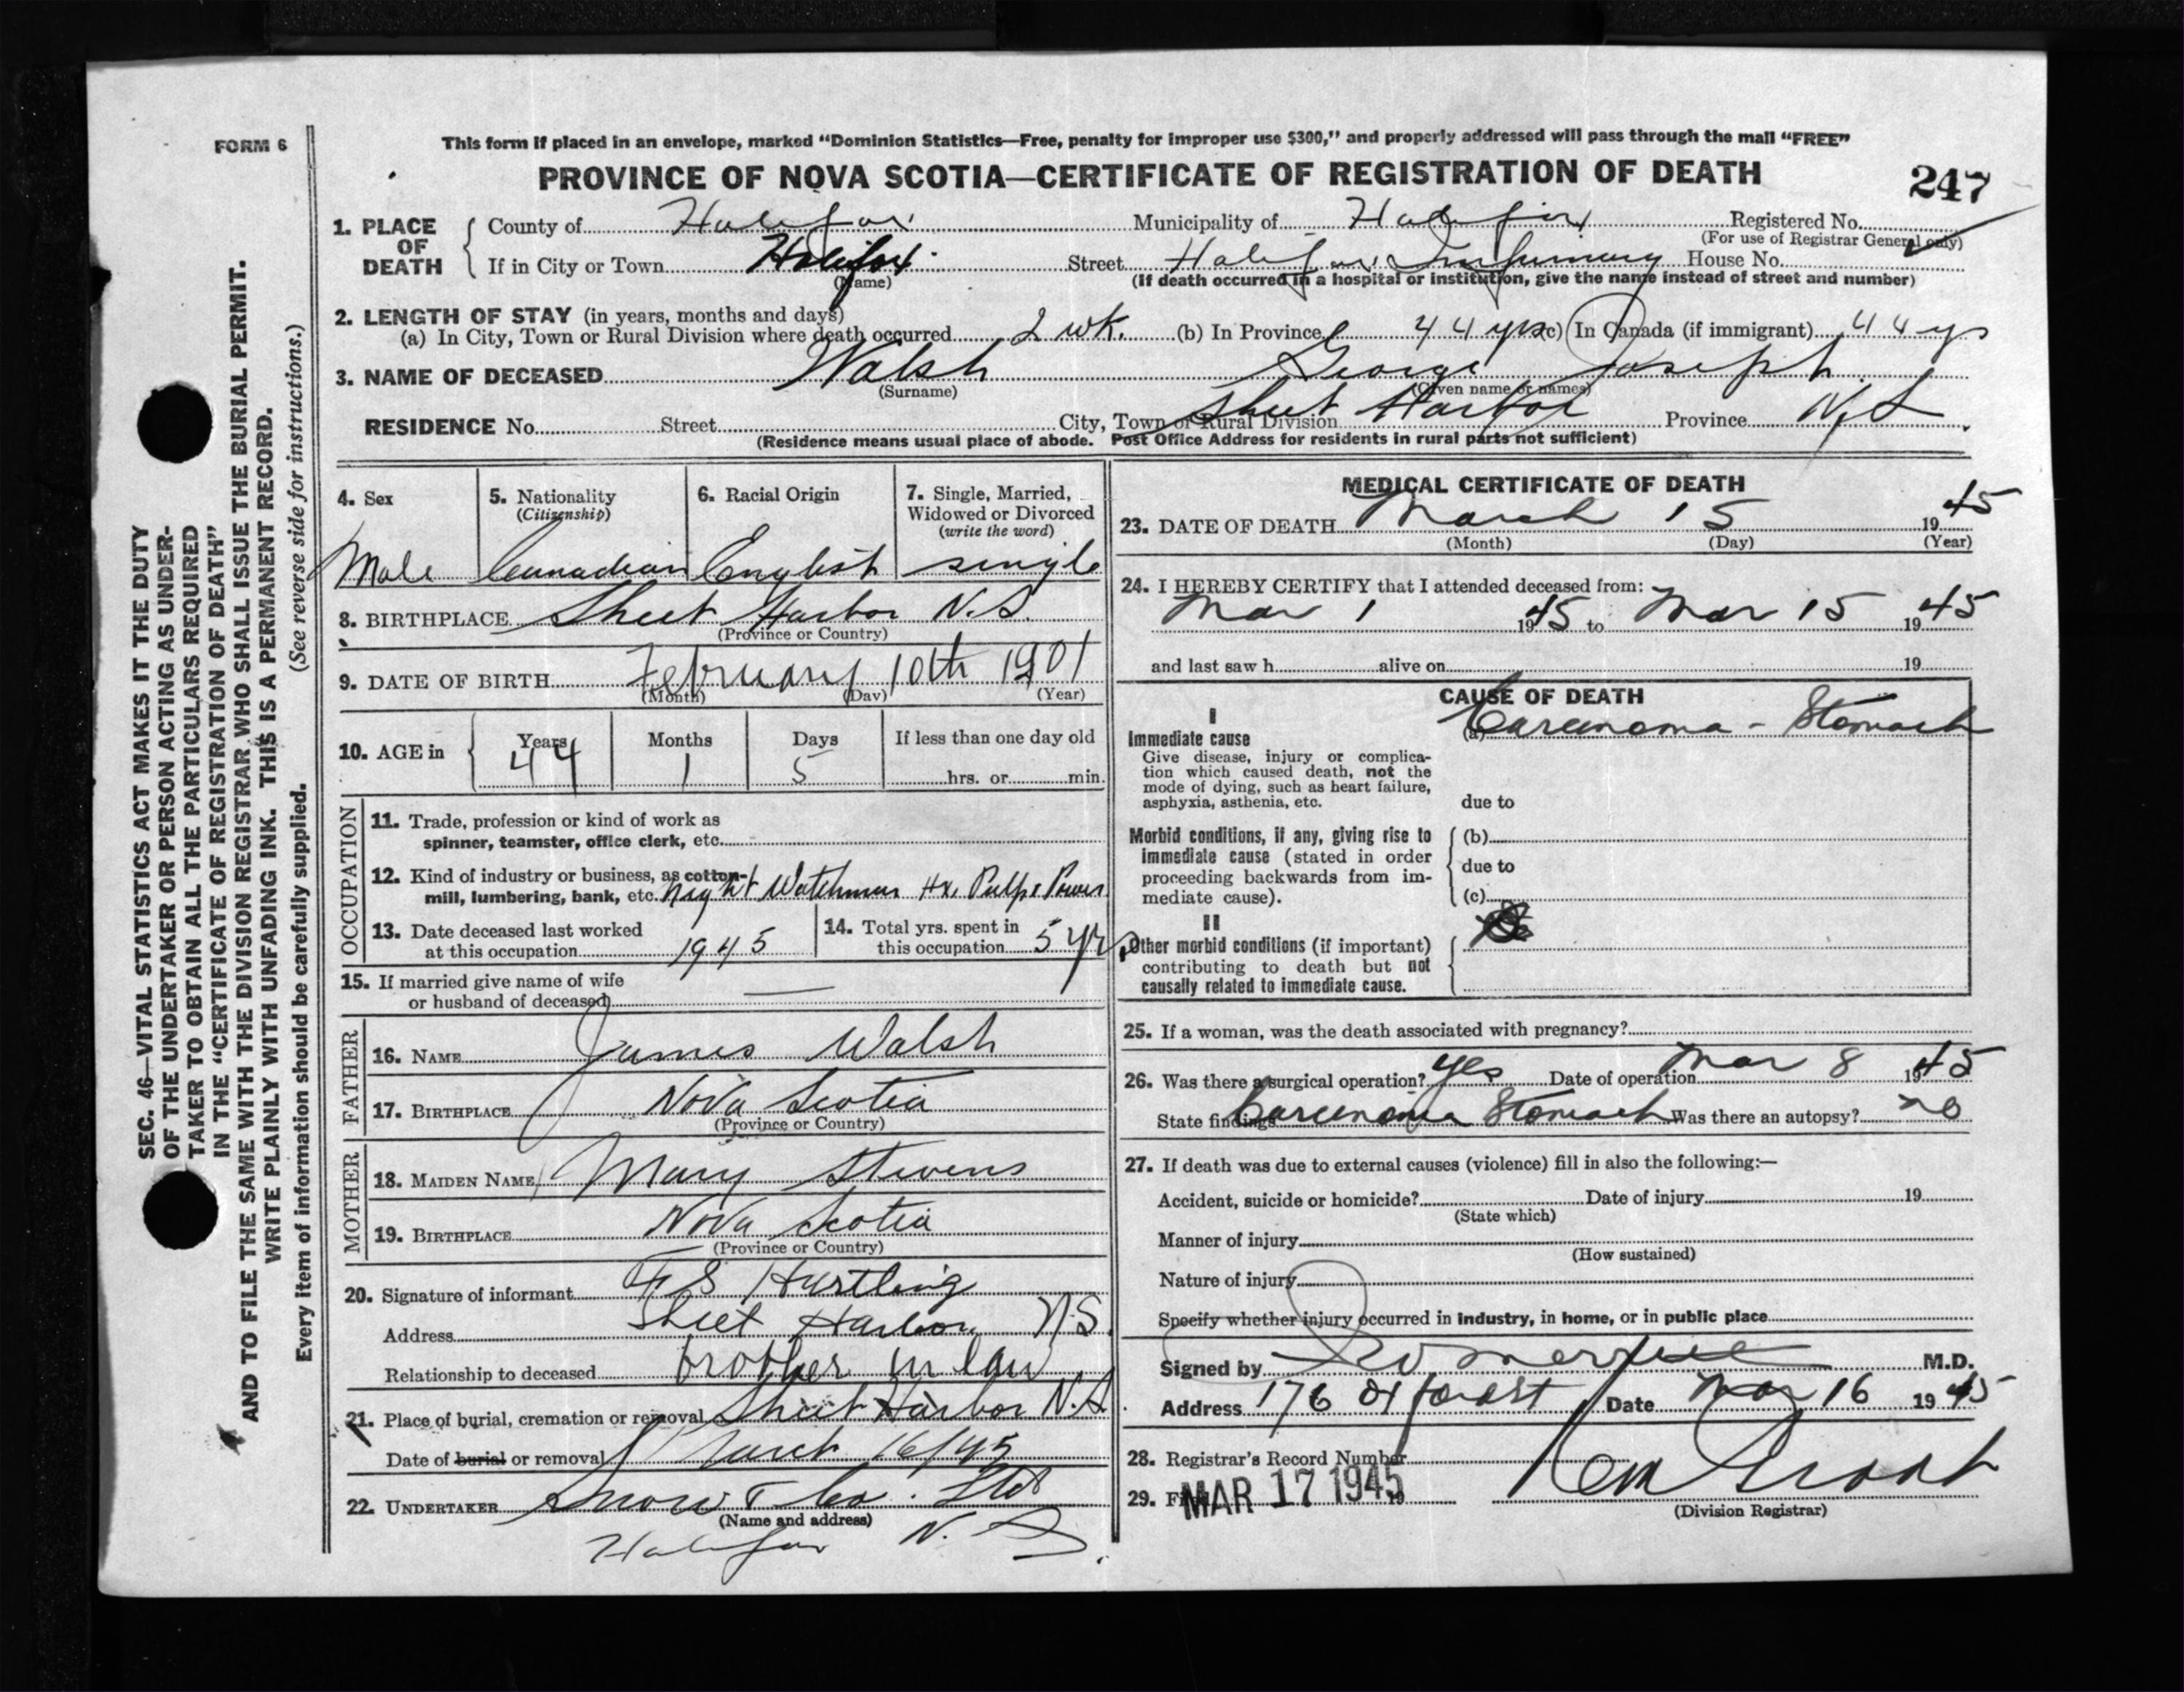 FORM 6
This form if placed in an envelope, marked “Dominion Statistics—Free, penalty for improper use $300,” and properly addressed will pass through the mail “FREE”
PROVINCE OF NOVA SCOTIA—CERTIFICATE OF REGISTRATION OF DEATH
247
SEC. 46—VITAL STATISTICS ACT MAKES IT THE DUTY
OF THE UNDERTAKER OR PERSON ACTING AS UNDER-
TAKER TO OBTAIN ALL THE PARTICULARS REQUIRED
IN THE “CERTIFICATE OF REGISTRATION OF DEATH”
AND TO FILE THE SAME WITH THE DIVISION REGISTRAR WHO SHALL ISSUE THE BURIAL PERMIT.
WRITE PLAINLY WITH UNFADING INK. THIS IS A PERMANENT RECORD.
Every item of information should be carefully supplied. (See reverse side for instructions.)
1. PLACE OF DEATH
County of Halifax Municipality of Halifax Registered No.
(For use of Registrar General only)
If in City or Town Halifax Street Halifax Infirmary House No.
(Name) (If death occurred in a hospital or institution, give the name instead of street and number)
2. LENGTH OF STAY (in years, months and days)
(a) In City, Town or Rural Division where death occurred 2 wk. (b) In Province 44 yrs (c) In Canada (if immigrant) 44 ys
3. NAME OF DECEASED Walsh George Joseph
(Surname) (Given name or names)
RESIDENCE No. Street City, Town or Rural Division Sheet Harbor Province N.S.
(Residence means usual place of abode. Post Office Address for residents in rural parts not sufficient)
4. Sex
Male
5. Nationality
(Citizenship)
Canadian
6. Racial Origin
English
7. Single, Married,
Widowed or Divorced
(write the word)
single
8. BIRTHPLACE Sheet Harbor N.S.
(Province or Country)
9. DATE OF BIRTH February 10th 1901
(Month) (Day) (Year)
10. AGE in
Years Months Days If less than one day old
44 1 5 hrs. or min.
OCCUPATION
11. Trade, profession or kind of work as
spinner, teamster, office clerk, etc.
12. Kind of industry or business, as cotton-
mill, lumbering, bank, etc. night Watchman Hx. Pulp & Power
13. Date deceased last worked
at this occupation 1945
14. Total yrs. spent in
this occupation 5 yrs
15. If married give name of wife
or husband of deceased —
FATHER
16. NAME James Walsh
17. BIRTHPLACE Nova Scotia
(Province or Country)
MOTHER
18. MAIDEN NAME Mary Stevens
19. BIRTHPLACE Nova Scotia
(Province or Country)
20. Signature of informant F S Hartling
Address Sheet Harbor N.S.
Relationship to deceased brother in law
21. Place of burial, cremation or removal Sheet Harbor N.S
Date of burial or removal March 16/45
22. UNDERTAKER Snow & Co. Ltd
(Name and address)
Halifax N.S.
MEDICAL CERTIFICATE OF DEATH
23. DATE OF DEATH March 15 1945
(Month) (Day) (Year)
24. I HEREBY CERTIFY that I attended deceased from:
Mar 1 1945 to Mar 15 1945
and last saw h alive on 19
CAUSE OF DEATH
I
Immediate cause (a) Carcinoma - Stomach
Give disease, injury or complica-
tion which caused death, not the
mode of dying, such as heart failure,
asphyxia, asthenia, etc. due to
Morbid conditions, if any, giving rise to (b)
immediate cause (stated in order
proceeding backwards from im- due to
mediate cause). (c)
II
Other morbid conditions (if important)
contributing to death but not
causally related to immediate cause.
25. If a woman, was the death associated with pregnancy?
26. Was there a surgical operation? yes Date of operation Mar 8 1945
State findings Carcinoma Stomach Was there an autopsy? no
27. If death was due to external causes (violence) fill in also the following:—
Accident, suicide or homicide? Date of injury 19
(State which)
Manner of injury
(How sustained)
Nature of injury
Specify whether injury occurred in industry, in home, or in public place
Signed by M.D.
Address 176 Oxford St Date Mar 16 1945
28. Registrar's Record Number
29. MAR 17 1945
(Division Registrar)